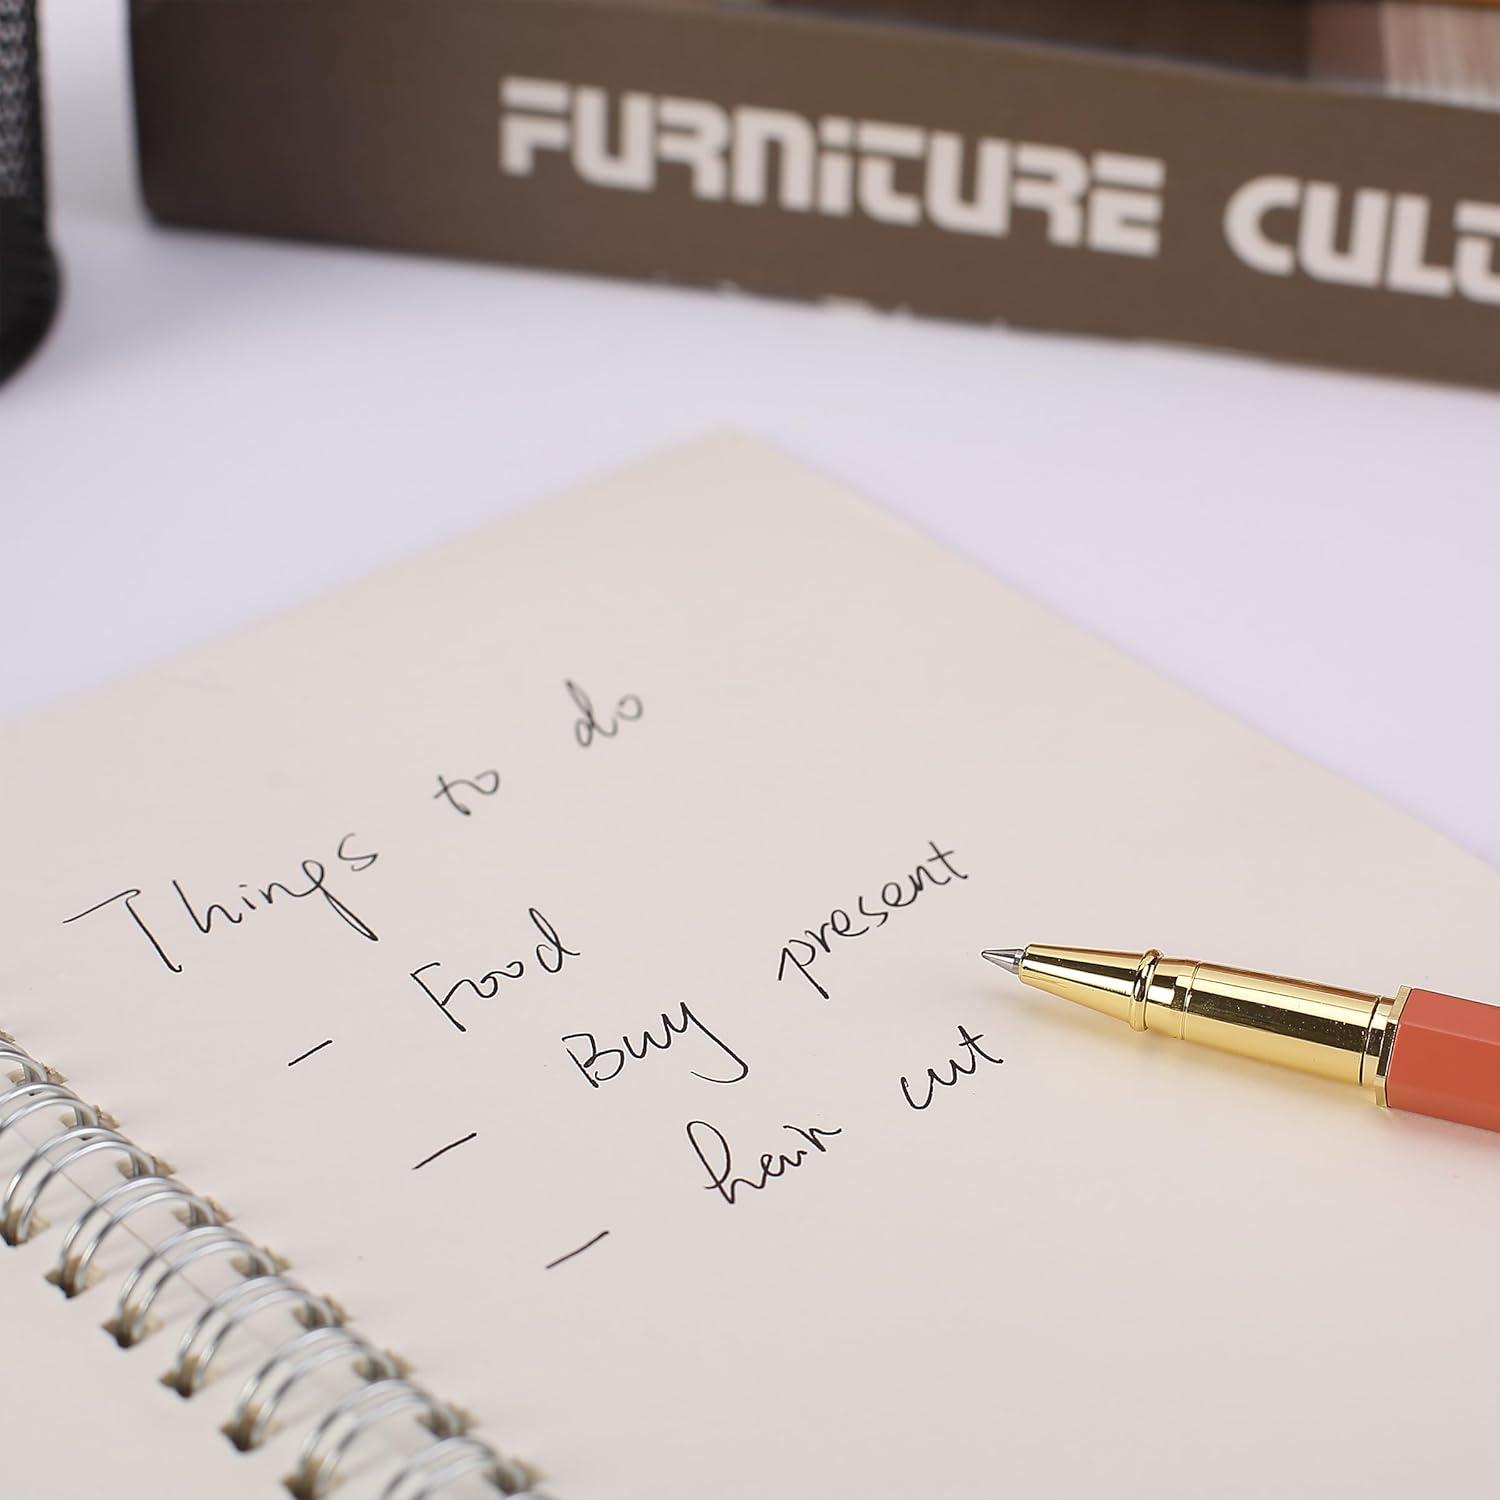 FURNiTURE CULT
Things to do
- Food
- Buy present
- hair cut